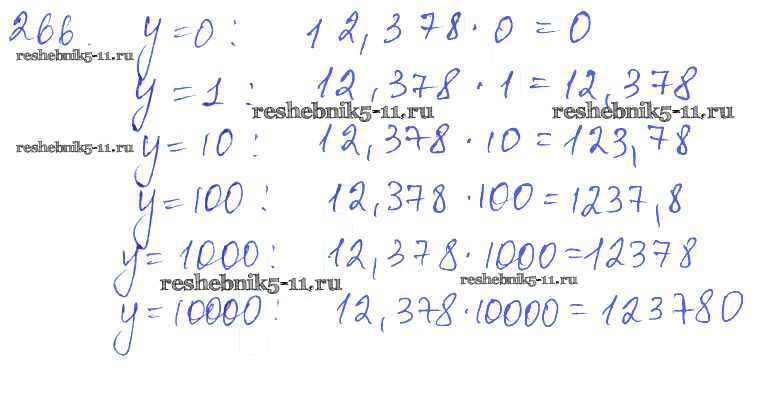 266. y=0: 12,378·0=0
reshebnik5-11.ru
y=1: 12,378·1=12,378
reshebnik5-11.ru reshebnik5-11.ru
reshebnik5-11.ru y=10: 12,378·10=123,78
y=100: 12,378·100=1237,8
y=1000: 12,378·1000=12378
reshebnik5-11.ru reshebnik5-11.ru
y=10000: 12,378·10000=123780